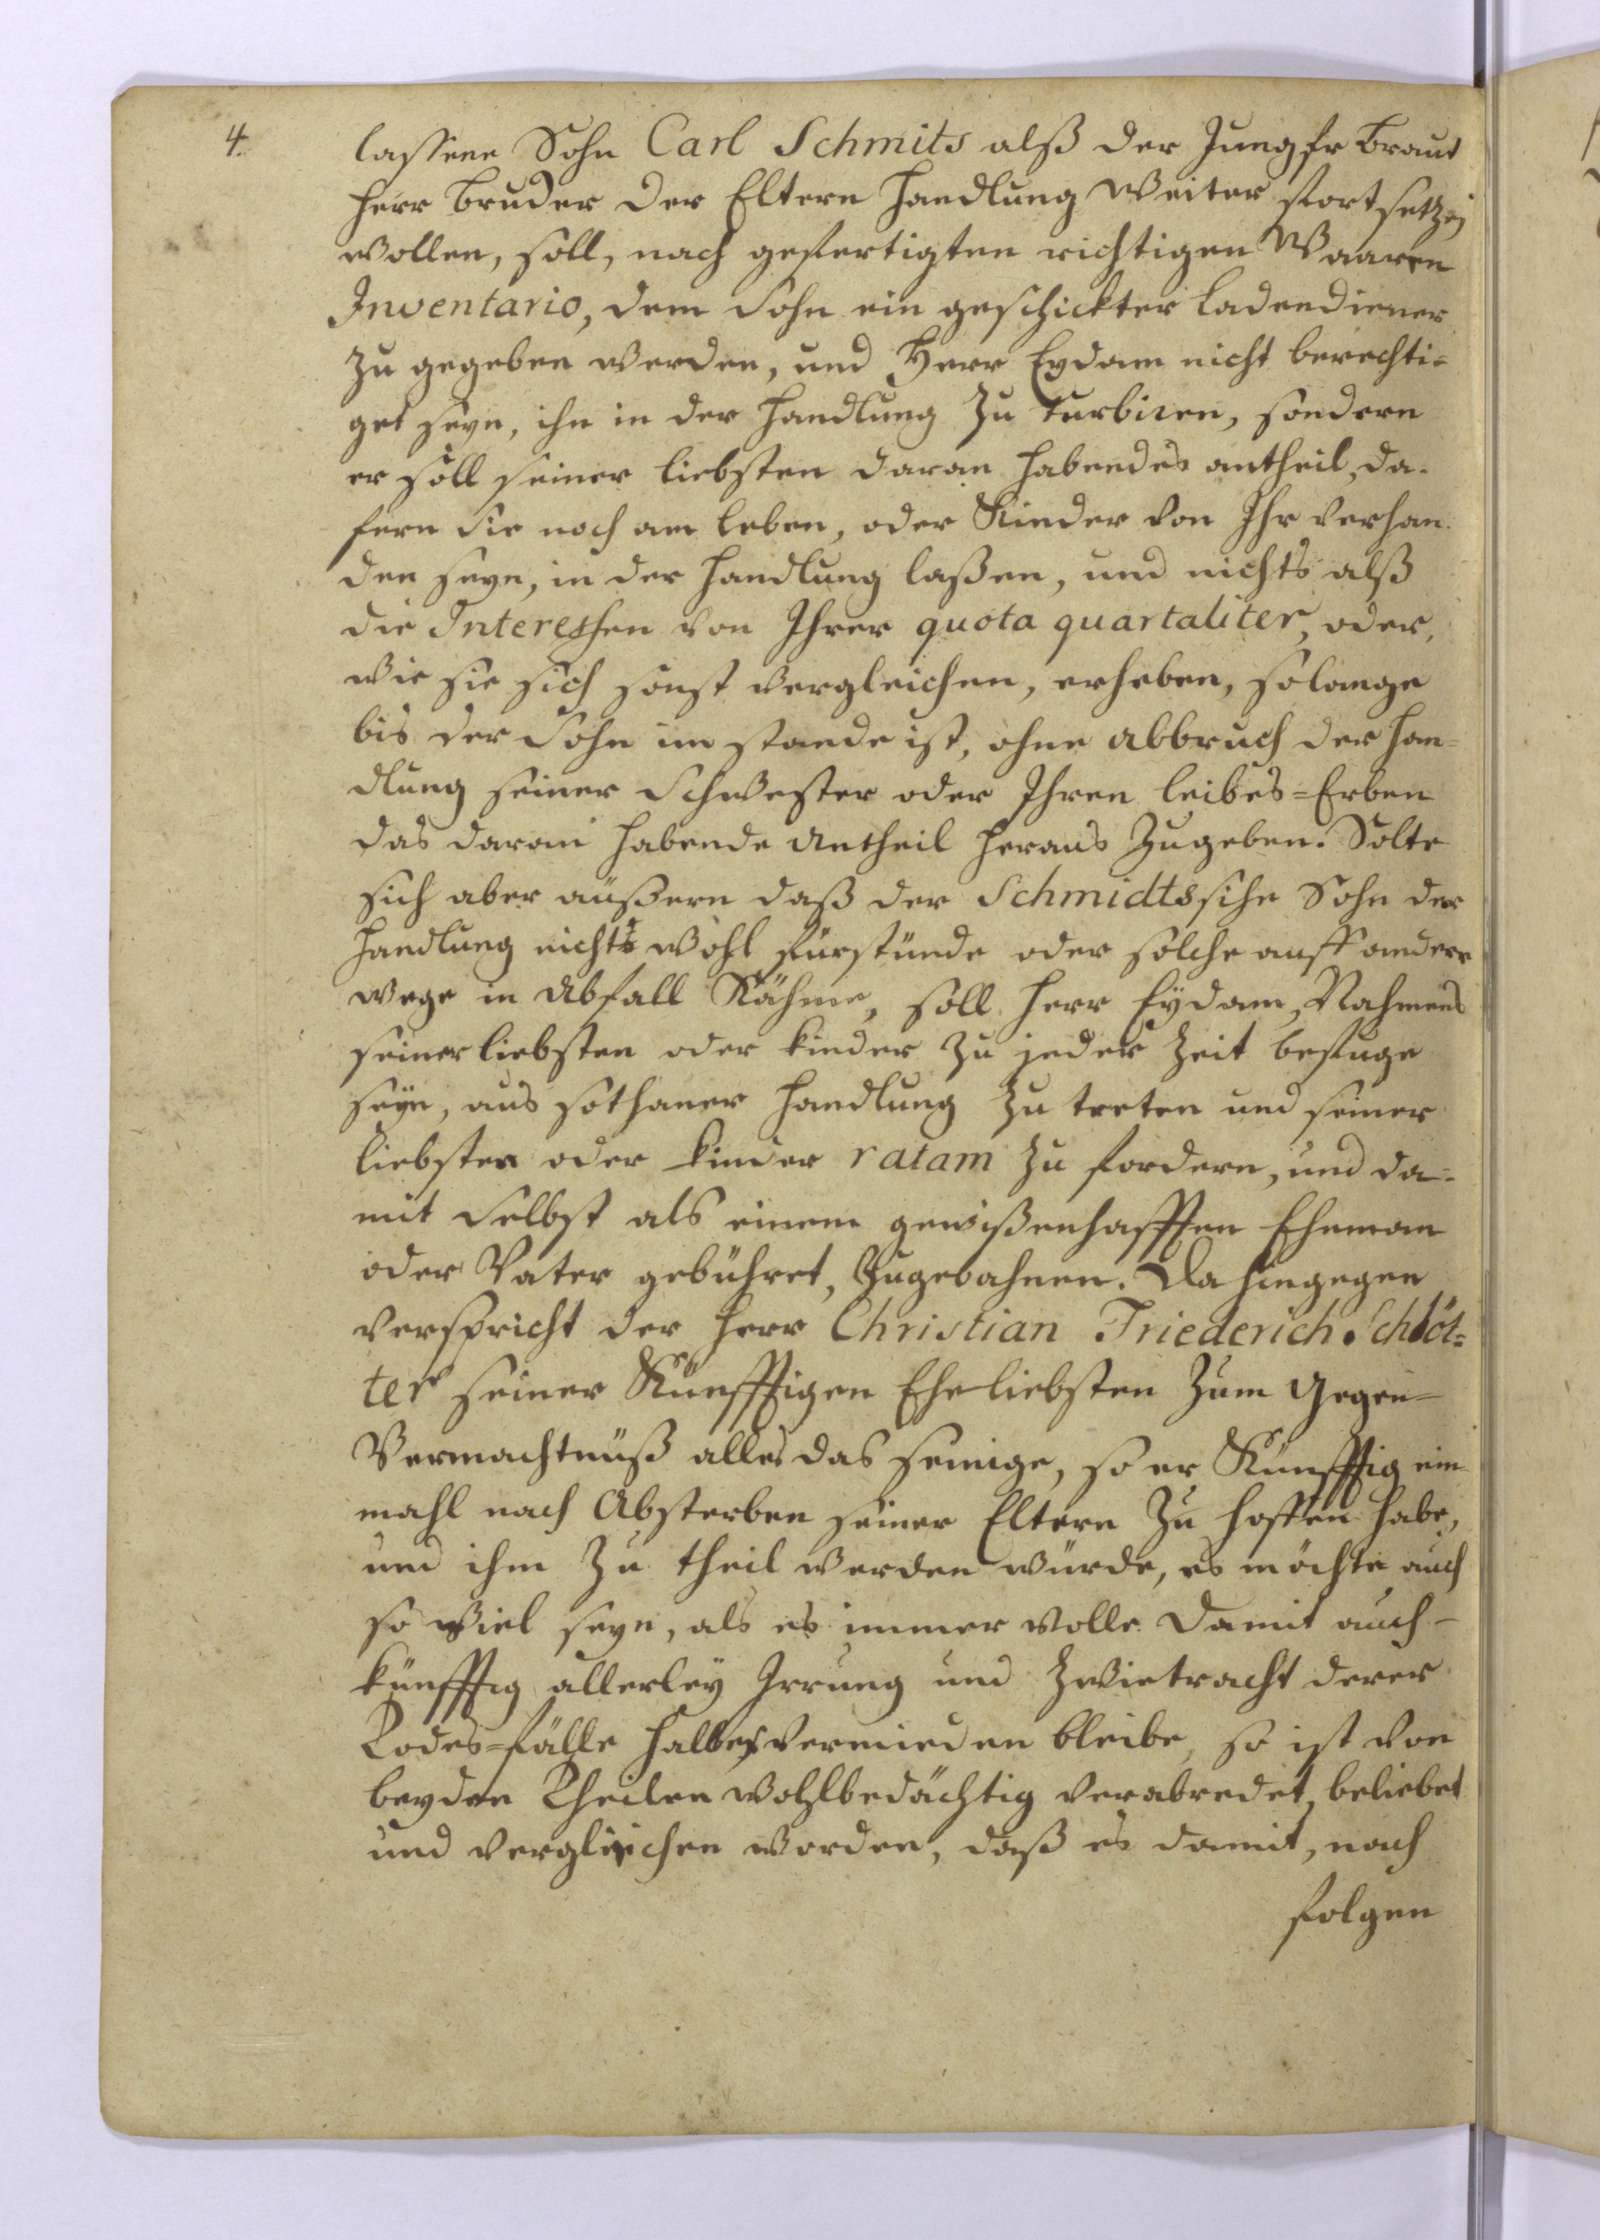 4.
lassene Sohn Carl Schmits alß der Jungfr Braut
Herr Bruder der Eltern Handlung weiter fortsetzen
wollen, soll, nach gefertigten richtigen Waaren
Inventario, dem Sohn ein geschickter Ladendiener
zu gegeben werden, und Herr Eydam nicht berechti-
get seyn, ihn in der Handlung zu turbiren, sondern
er soll seiner liebsten daran habendes antheil, da-
fern sie noch am leben, oder Kinder von Ihr verhan-
den seyn, in der Handlung laßen, und nichts alß
die Interessen von Ihrer quota quartaliter, oder,
wie sie sich sonst vergleichen, erheben, solange
bis der Sohn im stande ist, ohne abbruch der Han-
dlung seiner Schwester oder Ihren leibes=Erben
das daran habende Antheil heraus zugeben. Solte
sich aber äußern daß der Schmidtsische Sohn der
Handlung nichts wohl fürstünde oder solche auff andere
wege in Abfall Kähme, soll Herr Eÿdam, Nahmens
seiner liebsten oder kinder zu jeder Zeit befuge
seÿn, aus sothaner Handlung zu treten und seiner
liebsten oder kinder ratam zu fordern, und da-
mit selbst als einem gewißenhafften Ehemann
oder Vater gebühret, zugebahren. Da hingegen
verspricht der Herr Christian Friederich Schlöt=
ter seiner Künfftigen Eheliebsten zum Gegen-
Vermachtnüß alles das seinige, so er Künfftig ein-
mahl nach Absterben seiner Eltern zu hoffen habe,
und ihm zu theil werden würde, es möchte auch
so viel seyn, als es immer wolle. Damit auch-
künfftig allerleÿ Irrung und Zwietracht derer
Todes=fälle halber vermieden bleibe, so ist von
beyden Theilen wohlbedächtig verabredet, beliebet
und verglichen worden, daß es damit, nach
folgen